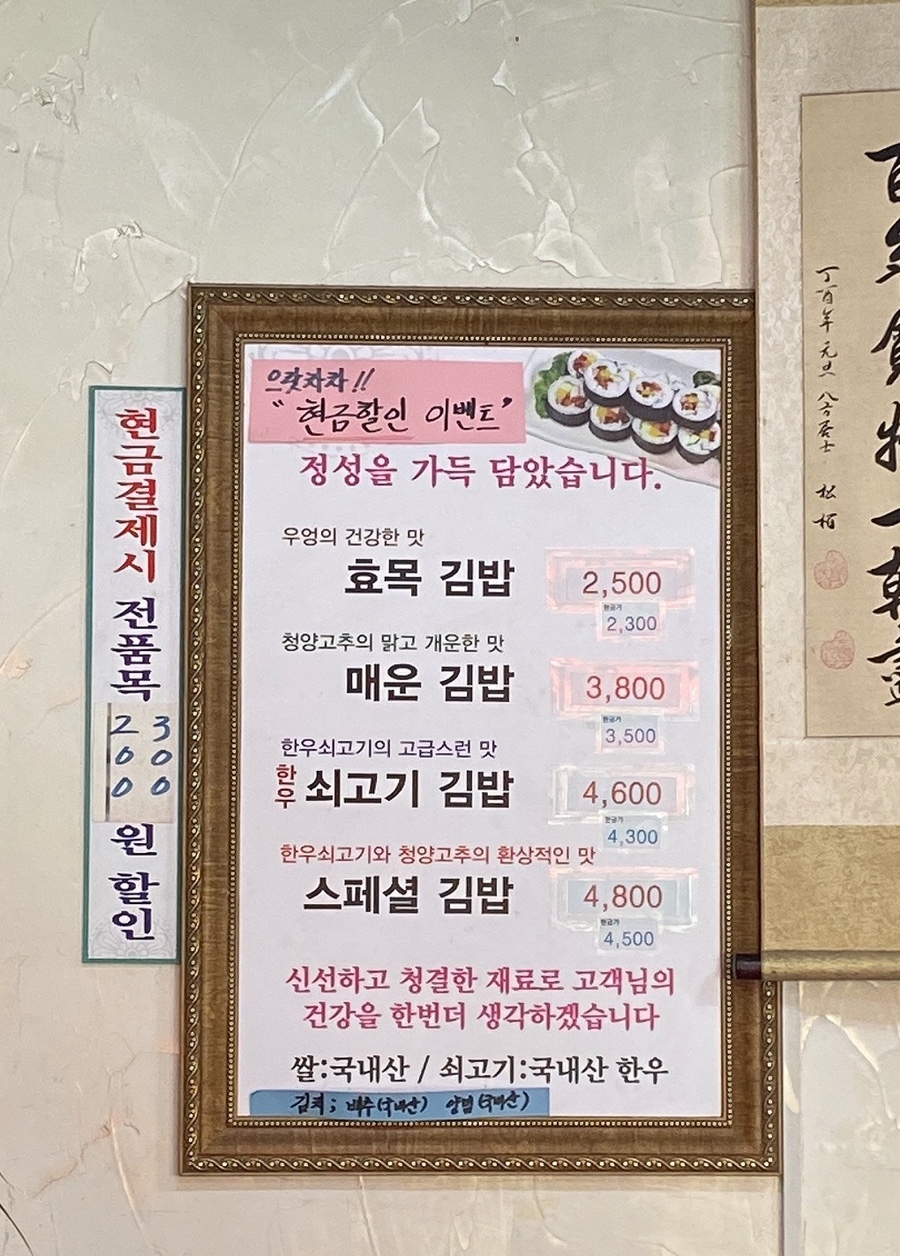 으랏차차!!
"현금할인 이벤트"
정성을 가득 담았습니다.
우엉의 건강한 맛
효목 김밥 2,500
현금가
2,300
청양고추의 맑고 개운한 맛
매운 김밥 3,800
현금가
3,500
한우쇠고기의 고급스런 맛
한우 쇠고기 김밥 4,600
현금가
4,300
한우쇠고기와 청양고추의 환상적인 맛
스페셜 김밥 4,800
현금가
4,500
신선하고 청결한 재료로 고객님의
건강을 한번더 생각하겠습니다
쌀:국내산 / 쇠고기:국내산 한우
김치; 배추(국내산) 양념(국내산)
현금결제시 전품목
200 300
원 할인
丁酉年 元旦 八公居士 松栢